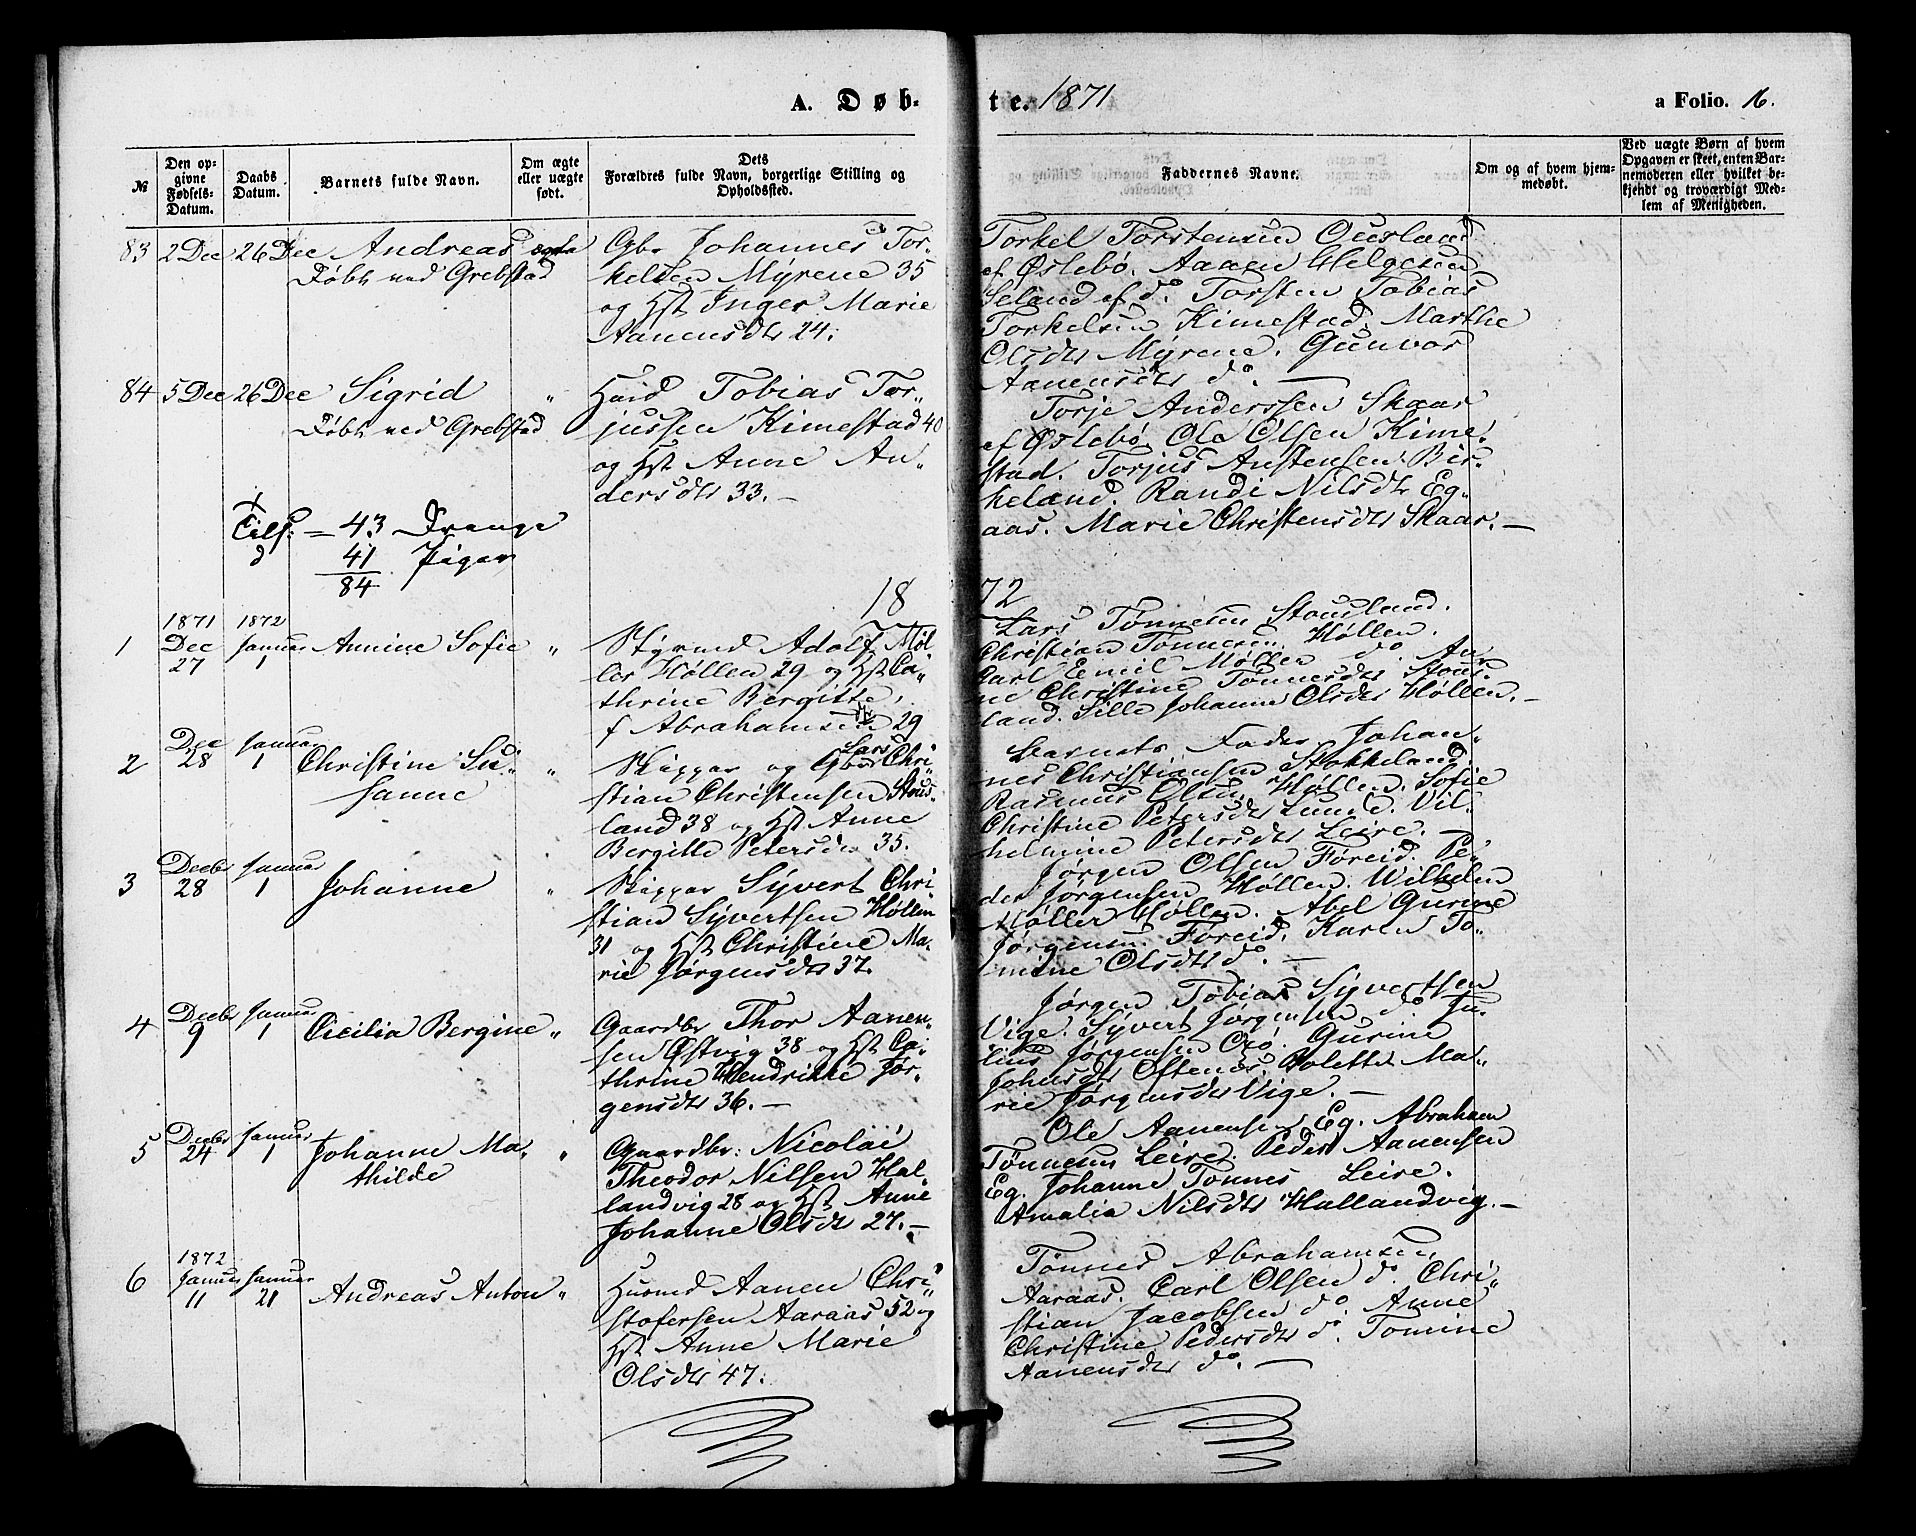 A. Døb-
te. 1871
a Folio. 16.
№
Den op-
givne
Fødsels-
Datum.
Daabs
Datum.
Barnets fulde Navn.
Om ægte
eller uægte
født.
Dets
Forældres fulde Navn, borgerlige Stilling og
Opholdssted.
Faddernes Navne.
Om og af hvem hjem-
medøbt.
Ved uægte Børn af hvem
Opgaven er skeet, enten Bar-
nemoderen eller hvilket be-
kjendt og troværdigt Med-
lem af Menigheden.
83 2 Dec 26 Dec Andreas ægte
Døbt ved Grebstad
Gbr Johannes Tor-
kelsen Myrene 35
og Hst Inger Marie
Aanensdtr 24.
Torkel Torstensen Ousland
af Øslebø. Aanen Helgesen
Seland af do. Torsten Tobias
Torkelsen Kimestad. Marthe
Olsdtr Myrene. Gunvor
Aanensdtr do. —
84 5 Dec 26 Dec Sigrid "
Døbt ved Grebstad
Huusmd Tobias Tor-
jussen Kimestad 40
og Hst Anne An-
dersdtr 33. —
Torje Anderssen Skaar
af Øslebø. Ole Olsen Kime-
stad. Torjus Anstensen Bir-
keland. Randi Nilsdtr Eg-
aas. Marie Christensdtr Skaar. —
Tils: = 43 Drenge
41 Piger
84
1872
1 1871 Dec 27 1872 Januar 1 Annine Sofie "
Styrmd Adolf Møl-
ler Høllen 29 og Hst Ca-
thrine Bergitte,
f Abrahamsen 29
Lars Tønnesen Stousland.
Christian Tønnesen Høllen.
Carl Emil Møller do. An-
ne Christine Tønnesdtr Stous-
land. Sille Johanne Olsdtr Høllen. —
2 Dec 28 Januar 1 Christine Su-
sanne "
Skipper og Gbr Lars Chri-
stian Christensen Stous-
land 38 og Hst Anne
Bergitte Petersdtr 35.
Barnets Fader. Johan-
nes Christiansen Stokkeland.
Rasmus Olsen Høllen. Sofie
Christine Petersdtr Lunde. Vil-
helmine Petersdtr Leire. —
3 Decbr 28 Januar 1 Johanne "
Skipper Syvert Chri-
stian Syvertsen Høllen
31 og Hst Christine Ma-
rie Jørgensdtr 37.
Jørgen Olsen Føreid. Pe-
der Jørgensen Høllen. Wilhelm
Møller Høllen. Abel Gurine
Jørgensen Føreid. Karen To-
mine Olsdtr do. —
4 Decbr 9 Januar 1 Cicilia Bergine "
Gaardbr Thor Aanen-
sen Østvig 38 og Hst Ca-
thrine Hendrikke Jør-
gensdtr 36. —
Jørgen Tobias Syvertsen
Vige. Syvert Jørgensen do. Ju-
lius Jørgensen Odø. Gurine
Johnsdtr Oftenes. Volette Ma-
rie Jørgensdtr Vige. —
5 Decbr 24 Januar 1 Johanne Ma-
thilde "
Gaardbr: Nicolai
Theodor Nilsen Hal-
landvig 28 og Hst Anne
Johanne Olsdtr 27. —
Ole Aanensen Eg. Abraham
Tønnesen Leire. Peder Aanensen
Eg. Johanne Tønnes Leire.
Amalia Nilsdtr Hallandvig. —
6 1872 Januar 11 Januar 21 Andreas Anton "
Husmd Aanen Chri-
stofersen Aaraas 52 og
Hst Anne Marie
Olsdtr 47.
Tønnes Abrahamsen
Aaraas. Carl Olsen do. Chri-
stian Jacobsen do. Anne
Christine Pedersdtr do. Tomine
Aanensdtr do. —